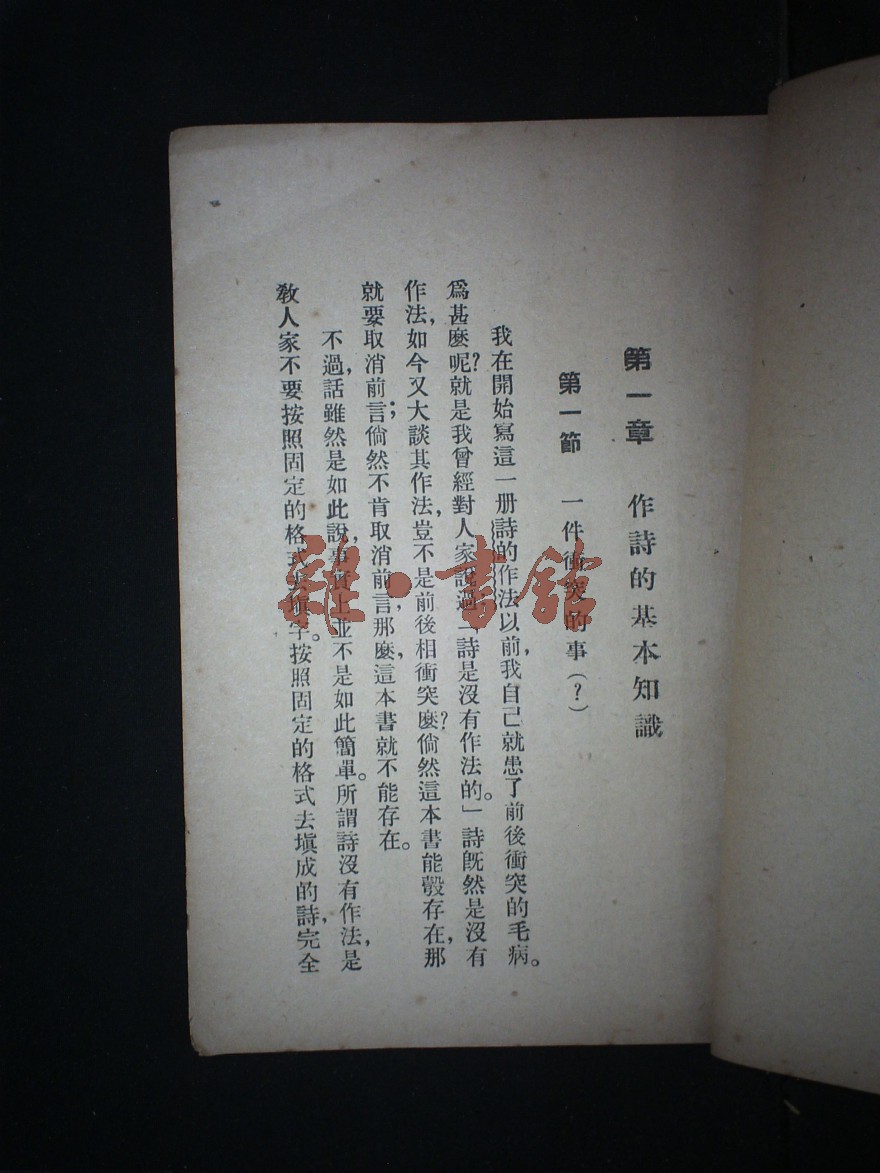 第一章 作詩的基本知識
第一節 一件衝突的事(？)
我在開始寫這一册詩的作法以前，我自己就患了前後衝突的毛病。
爲甚麽呢？就是我曾經對人家說過：「詩是沒有作法的。」詩旣然是沒有
作法，如今又大談其作法，豈不是前後相衝突麽？倘然這本書能彀存在，那
就要取消前言；倘然不肯取消前言，那麽，這本書就不能存在。
不過，話雖然是如此說，事實上並不是如此簡單。所謂詩沒有作法，是
敎人家不要按照固定的格式去塡字。按照固定的格式去塡成的詩，完全
雜·書館